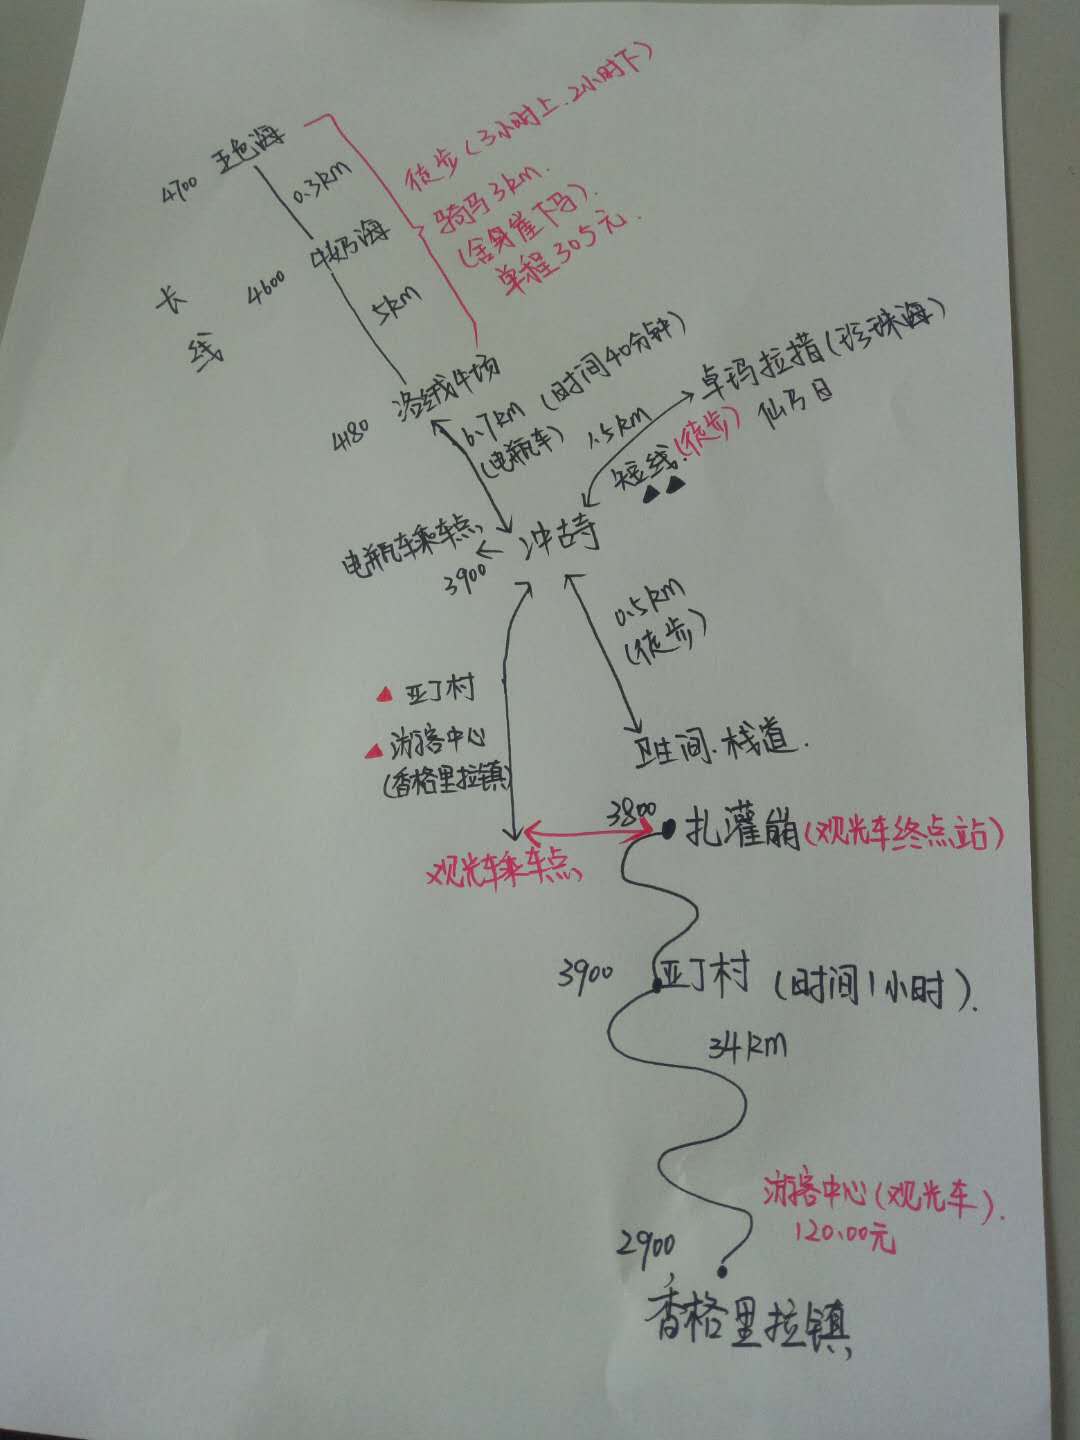 徒步(3小时上.2小时下)
4700 五色海
0.3km
骑马3km.
(舍身崖下马).
单程305元.
4600 牛奶海
长
线
5km
4180 洛绒牛场
6.7km(时间40分钟)
(电瓶车)
1.5km
卓玛拉措(珍珠海)
仙乃日
短线.(徒步)
电瓶车乘车点
3900
冲古寺
0.5km
(徒步)
亚丁村
游客中心
(香格里拉镇)
卫生间.栈道.
3800 扎灌崩(观光车终点站)
观光车乘车点
3900 亚丁村(时间1小时).
34km
游客中心(观光车).
120.00元
2900
香格里拉镇